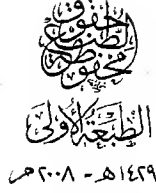 حقوق
الطبع
محفوظة
الطبعة الأولى
١٤٢٩هـ - ٢٠٠٨م